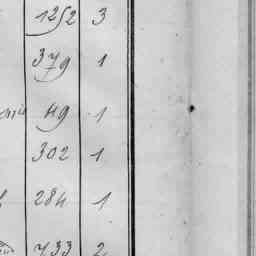 1252 3
379 1
49 1
302 1
284 1
733 2